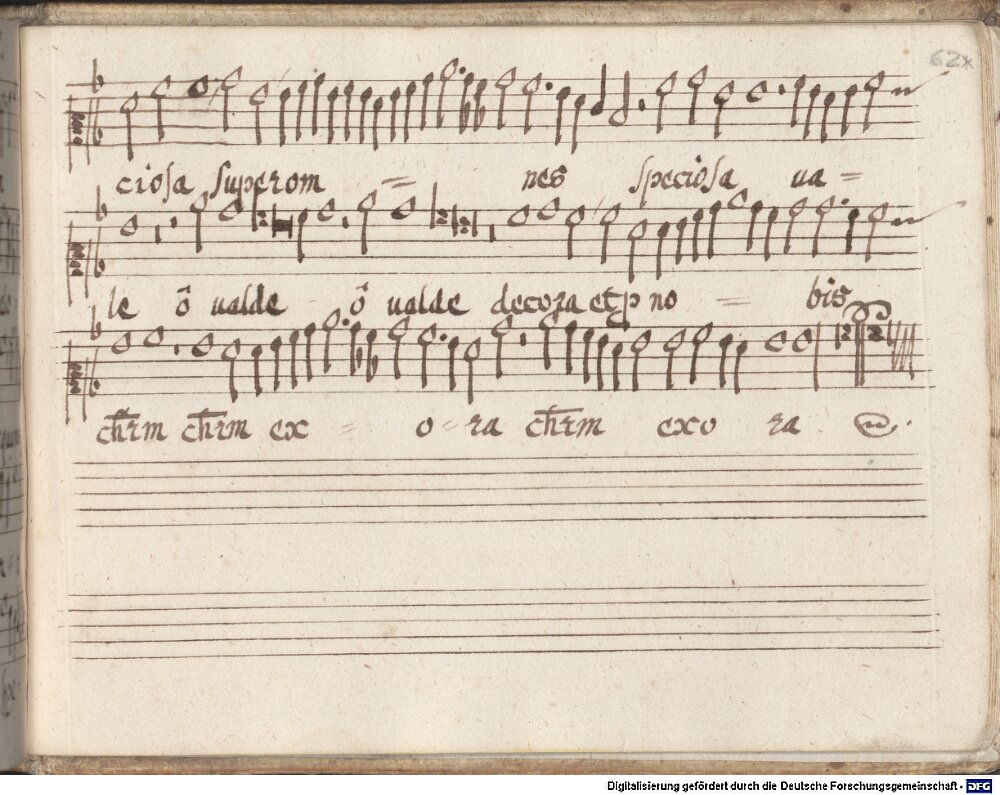 62x
ciosa superom = nes speciosa va =
le ô valde ô valde decora et p no = bis
chr̄m chr̄m ex = o = ra chr̄m exo ra
Digitalisierung gefördert durch die Deutsche Forschungsgemeinschaft - DFG